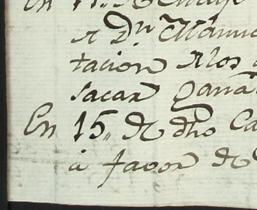 En 11,,
a Dn Manu
tacion a los
sacar Gana
En 15,, de dho Ca
a favor de